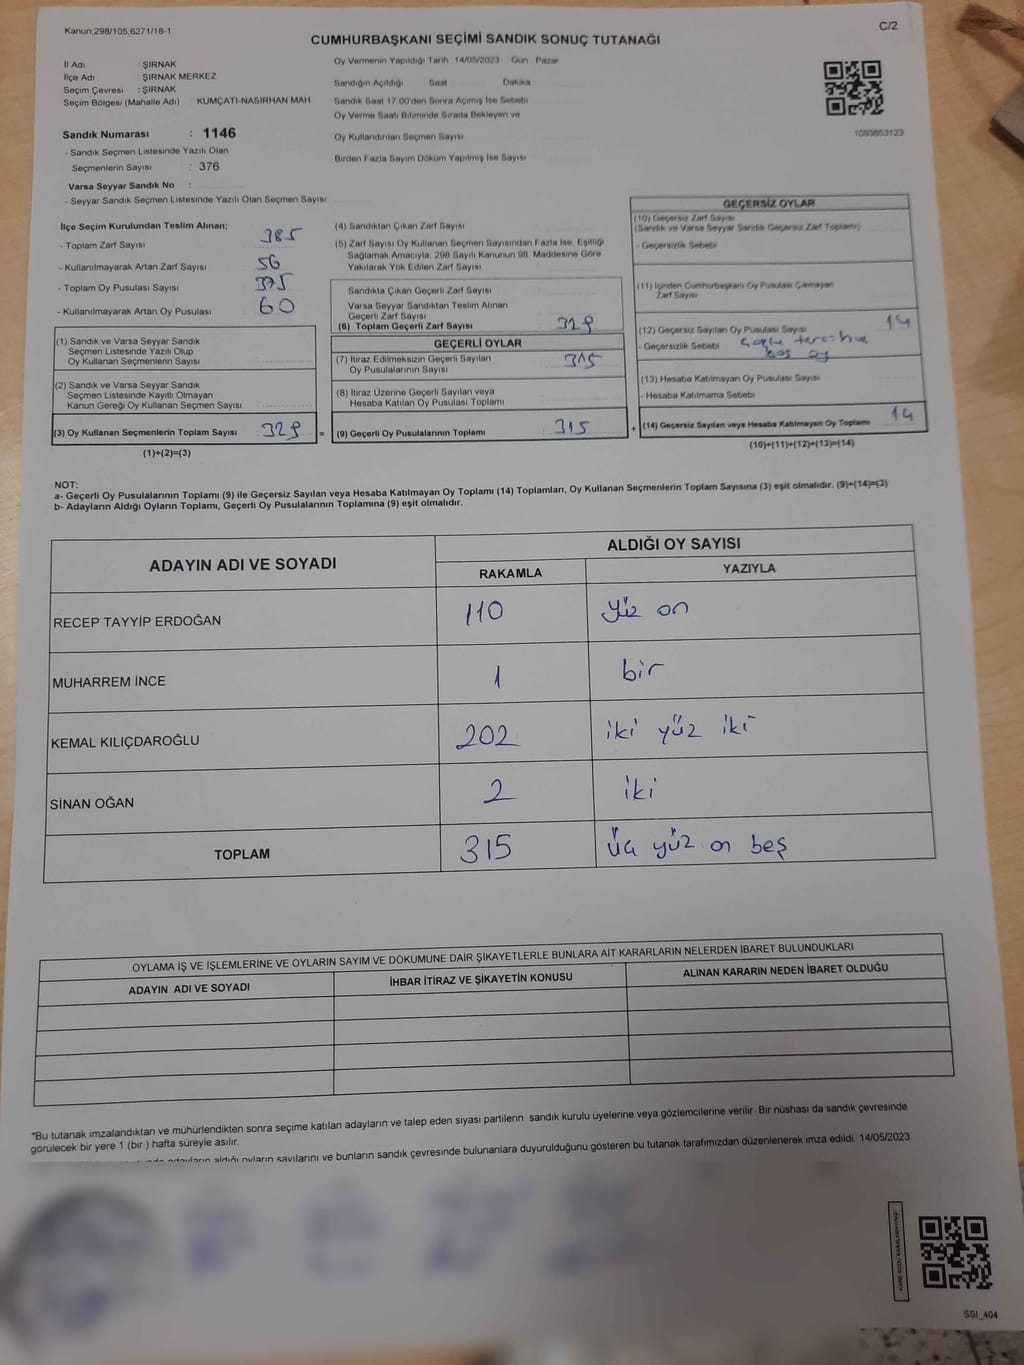 Kanun;298/105,6271/18-1
C/2
CUMHURBAŞKANI SEÇİMİ SANDIK SONUÇ TUTANAĞI
İl Adı ŞIRNAK
İlçe Adı ŞIRNAK MERKEZ
Seçim Çevresi : ŞIRNAK
Seçim Bölgesi (Mahalle Adı) KUMÇATI-NASIRHAN MAH
Sandık Numarası : 1146
- Sandık Seçmen Listesinde Yazılı Olan
Seçmenlerin Sayısı : 376
Varsa Seyyar Sandık No :
- Seyyar Sandık Seçmen Listesinde Yazılı Olan Seçmen Sayısı
Oy Vermenin Yapıldığı Tarih 14/05/2023 Gün Pazar
Sandığın Açıldığı Saat Dakika
Sandık Saat 17.00'den Sonra Açılmış İse Sebebi
Oy Verme Saati Bitiminde Sırada Bekleyen ve
Oy Kullandırılan Seçmen Sayısı
Birden Fazla Sayım Döküm Yapılmış İse Sayısı
1093853123
İlçe Seçim Kurulundan Teslim Alınan;
- Toplam Zarf Sayısı 385
- Kullanılmayarak Artan Zarf Sayısı 56
- Toplam Oy Pusulası Sayısı 375
- Kullanılmayarak Artan Oy Pusulası 60
(1) Sandık ve Varsa Seyyar Sandık
Seçmen Listesinde Yazılı Olup
Oy Kullanan Seçmenlerin Sayısı :
(2) Sandık ve Varsa Seyyar Sandık
Seçmen Listesinde Kayıtlı Olmayan
Kanun Gereği Oy Kullanan Seçmen Sayısı :
(3) Oy Kullanan Seçmenlerin Toplam Sayısı : 329 =
(1)+(2)=(3)
(4) Sandıktan Çıkan Zarf Sayısı
(5) Zarf Sayısı Oy Kullanan Seçmen Sayısından Fazla İse, Eşitliği
Sağlamak Amacıyla, 298 Sayılı Kanunun 98. Maddesine Göre
Yakılarak Yok Edilen Zarf Sayısı
Sandıkta Çıkan Geçerli Zarf Sayısı
Varsa Seyyar Sandıktan Teslim Alınan
Geçerli Zarf Sayısı
(6) Toplam Geçerli Zarf Sayısı 329
GEÇERLİ OYLAR
(7) İtiraz Edilmeksizin Geçerli Sayılan
Oy Pusulalarının Sayısı 315
(8) İtiraz Üzerine Geçerli Sayılan veya
Hesaba Katılan Oy Pusulası Toplamı
(9) Geçerli Oy Pusulalarının Toplamı 315 +
GEÇERSİZ OYLAR
(10) Geçersiz Zarf Sayısı
(Sandık ve Varsa Seyyar Sandık Geçersiz Zarf Toplamı)
- Geçersizlik Sebebi
(11) İçinden Cumhurbaşkanı Oy Pusulası Çıkmayan
Zarf Sayısı
(12) Geçersiz Sayılan Oy Pusulası Sayısı 14
- Geçersizlik Sebebi
boş oy
(13) Hesaba Katılmayan Oy Pusulası Sayısı
- Hesaba Katılmama Sebebi
(14) Geçersiz Sayılan veya Hesaba Katılmayan Oy Toplamı 14
(10)+(11)+(12)+(13)=(14)
NOT:
a- Geçerli Oy Pusulalarının Toplamı (9) ile Geçersiz Sayılan veya Hesaba Katılmayan Oy Toplamı (14) Toplamları, Oy Kullanan Seçmenlerin Toplam Sayısına (3) eşit olmalıdır. (9)+(14)=(3)
b- Adayların Aldığı Oyların Toplamı, Geçerli Oy Pusulalarının Toplamına (9) eşit olmalıdır.
ADAYIN ADI VE SOYADI ALDIĞI OY SAYISI
RAKAMLA YAZIYLA
RECEP TAYYİP ERDOĞAN 110 yüz on
MUHARREM İNCE 1 bir
KEMAL KILIÇDAROĞLU 202 iki yüz iki
SİNAN OĞAN 2 iki
TOPLAM 315 üç yüz on beş
OYLAMA İŞ VE İŞLEMLERİNE VE OYLARIN SAYIM VE DÖKÜMÜNE DAİR ŞİKAYETLERLE BUNLARA AİT KARARLARIN NELERDEN İBARET BULUNDUKLARI
ADAYIN ADI VE SOYADI İHBAR İTİRAZ VE ŞİKAYETİN KONUSU ALINAN KARARIN NEDEN İBARET OLDUĞU
*Bu tutanak imzalandıktan ve mühürlendikten sonra seçime katılan adayların ve talep eden siyasi partilerin sandık kurulu üyelerine veya gözlemcilerine verilir. Bir nüshası da sandık çevresinde
görülecek bir yere 1 (bir ) hafta süreyle asılır.
adayların aldığı oyların sayılarını ve bunların sandık çevresinde bulunanlara duyurulduğunu gösteren bu tutanak tarafımızdan düzenlenerek imza edildi. 14/05/2023
SSI_404